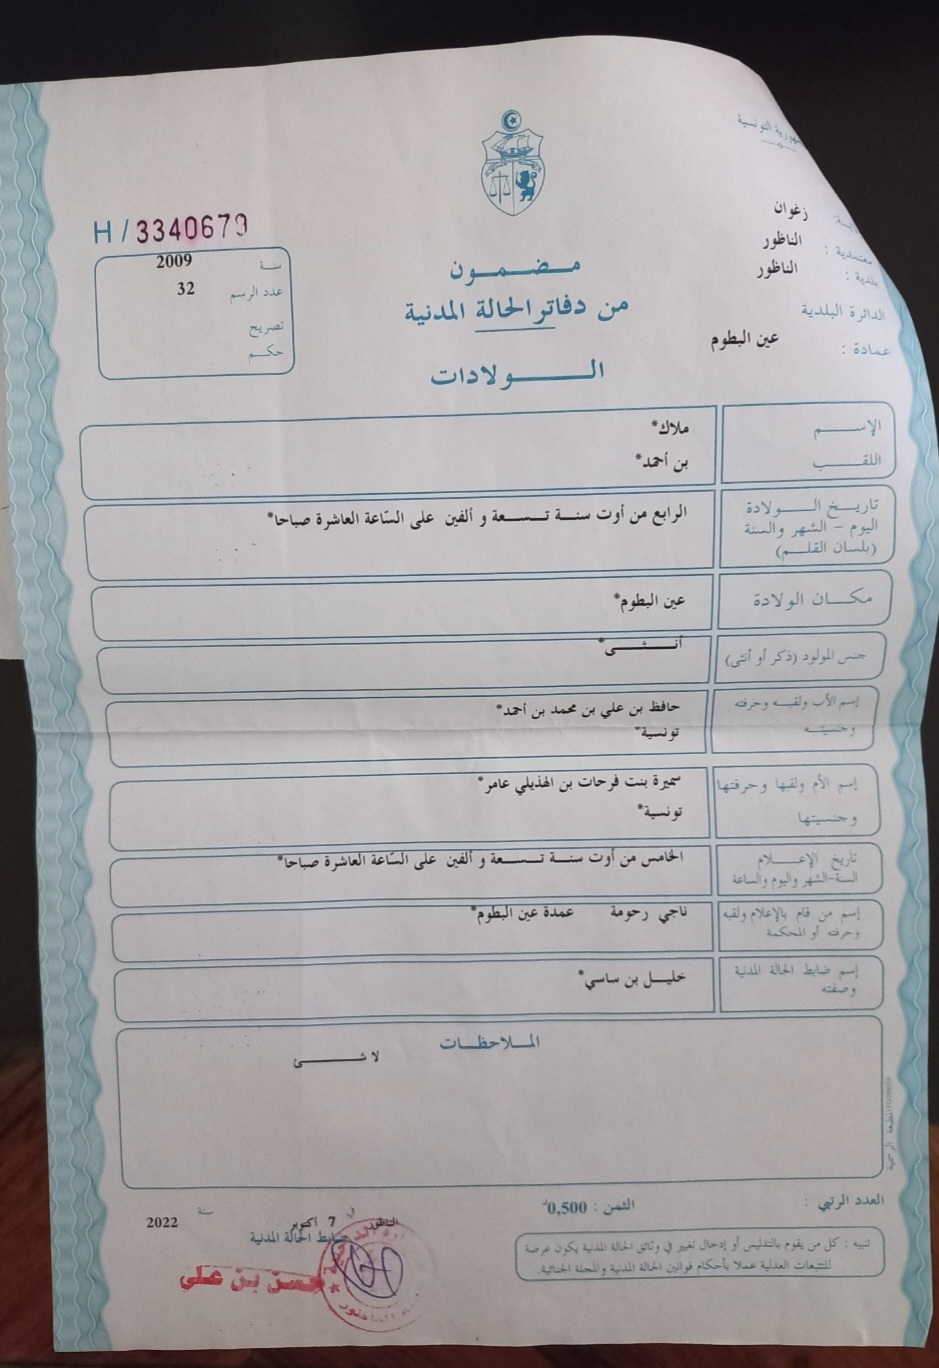 الجمهورية التونسية
H / 3340679
ولاية : زغوان
معتمدية : الناظور
بلدية : الناظور
الدائرة البلدية
عمادة : عين البطوم
سنة 2009
عدد الرسم 32
تصريح
حكم
مضمون
من دفاتر الحالة المدنية
الولادات
الإسم ملاك*
اللقب بن أحمد*
تاريخ الولادة الرابع من أوت سنة تسعة و ألفين على السّاعة العاشرة صباحا*
اليوم - الشهر والسنة
(بلسان القلم)
مكان الولادة عين البطوم*
جنس المولود (ذكر أو أنثى) أنثى*
إسم الأب ولقبه وحرفته حافظ بن علي بن محمد بن أحمد*
وجنسيته تونسية*
إسم الأم ولقبها وحرفتها سميرة بنت فرحات بن الهذيلي عامر*
وجنسيتها تونسية*
تاريخ الإعلام الخامس من أوت سنة تسعة و ألفين على السّاعة العاشرة صباحا*
السنة-الشهر واليوم والساعة
إسم من قام بالإعلام ولقبه ناجي رحومة عمدة عين البطوم*
وحرفته أو المحكمة
إسم ضابط الحالة المدنية خليل بن ساسي*
وصفته
الملاحظات
لا شئ
المطبعة الرسمية
العدد الرتبي :
الثمن : 0,500د
الناظور في 7 أكتوبر سنة 2022
ضابط الحالة المدنية
حسن بن علي
تنبيه : كل من يقوم بالتدليس أو إدخال تغيير في وثائق الحالة المدنية يكون عرضة
للتتبعات العدلية عملا بأحكام قوانين الحالة المدنية والمجلة الجنائية.